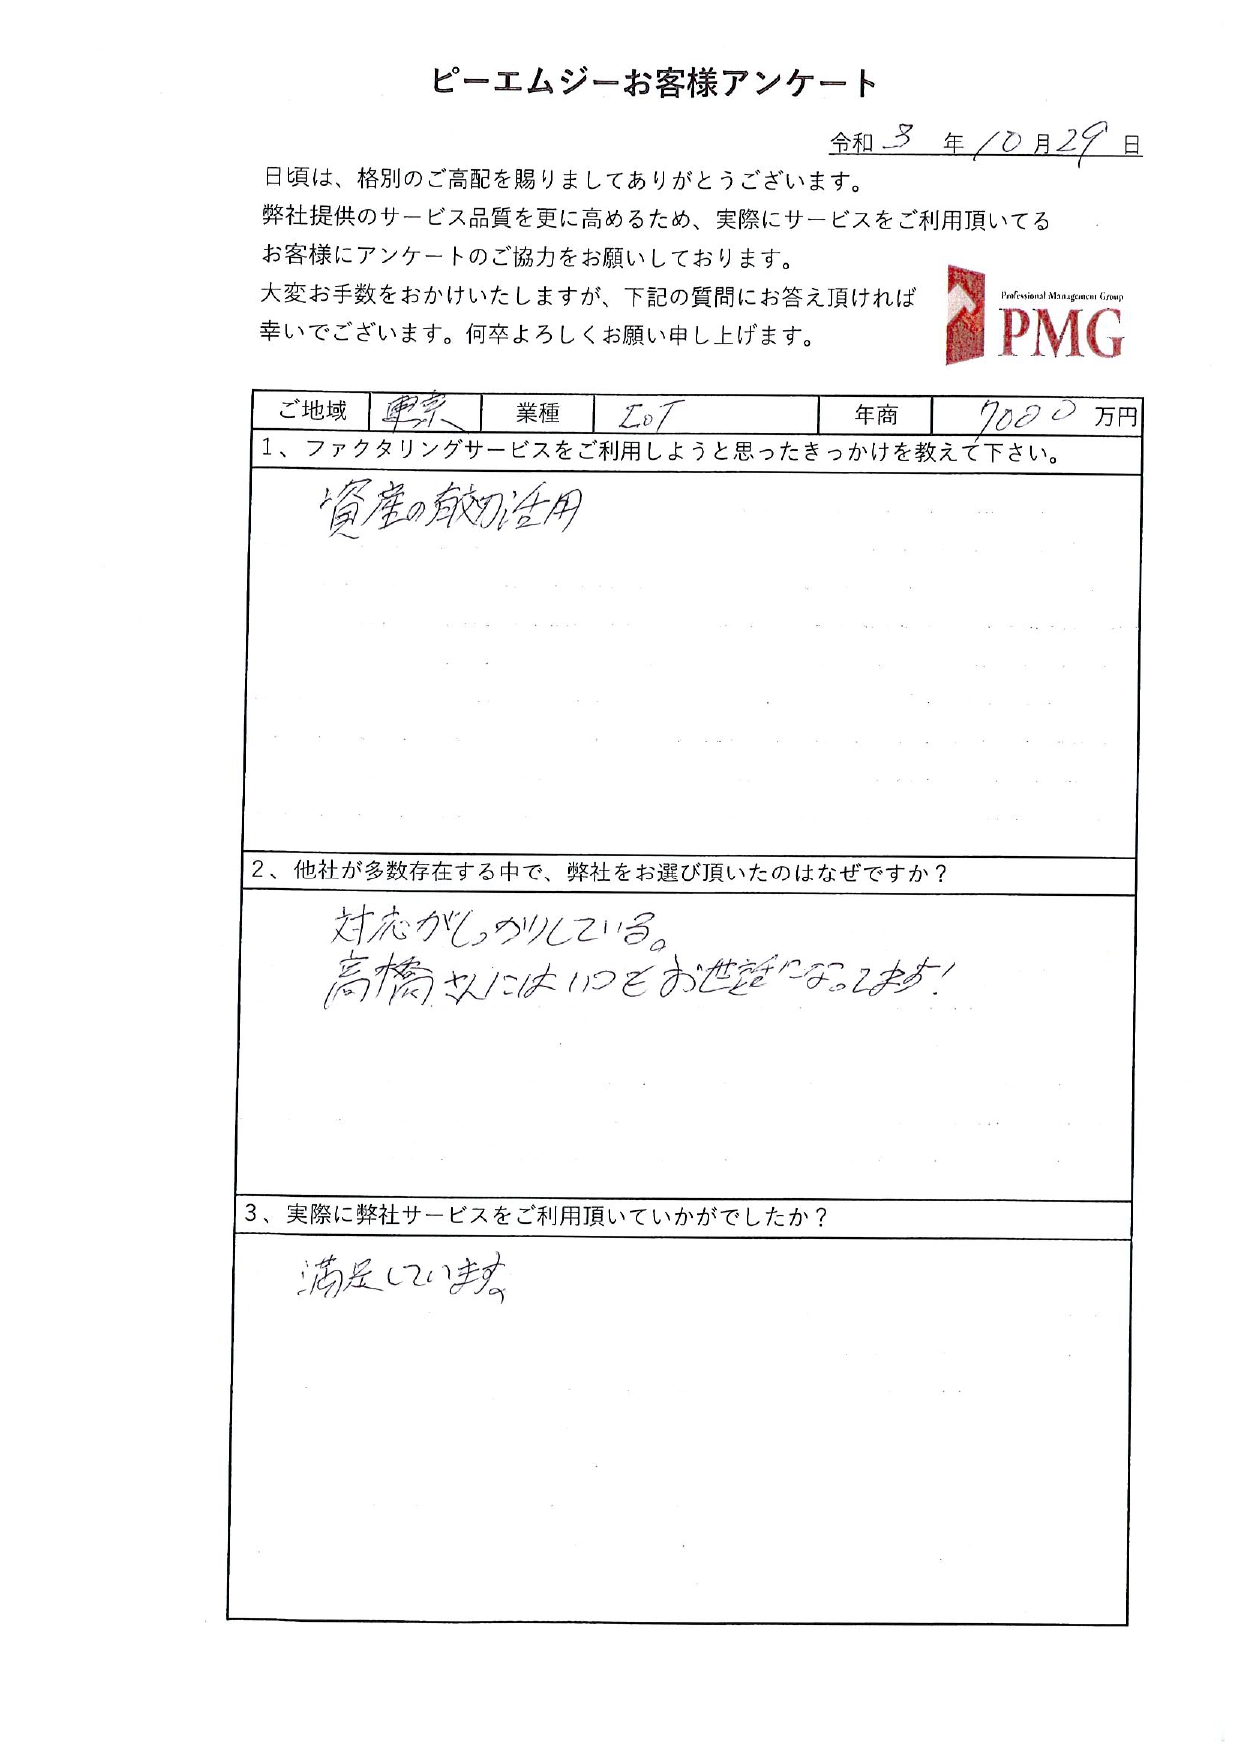 ピーエムジーお客様アンケート
令和 3 年 10 月 29 日
日頃は、格別のご高配を賜りましてありがとうございます。
弊社提供のサービス品質を更に高めるため、実際にサービスをご利用頂いてる
お客様にアンケートのご協力をお願いしております。
大変お手数をおかけいたしますが、下記の質問にお答え頂ければ
幸いでございます。何卒よろしくお願い申し上げます。
Professional Management Group
PMG
ご地域 東京 業種 IoT 年商 7000 万円
1、ファクタリングサービスをご利用しようと思ったきっかけを教えて下さい。
資産の有効活用
2、他社が多数存在する中で、弊社をお選び頂いたのはなぜですか?
対応がしっかりしている。
高橋さんにはいつもお世話になってます!
3、実際に弊社サービスをご利用頂いていかがでしたか?
満足しています。